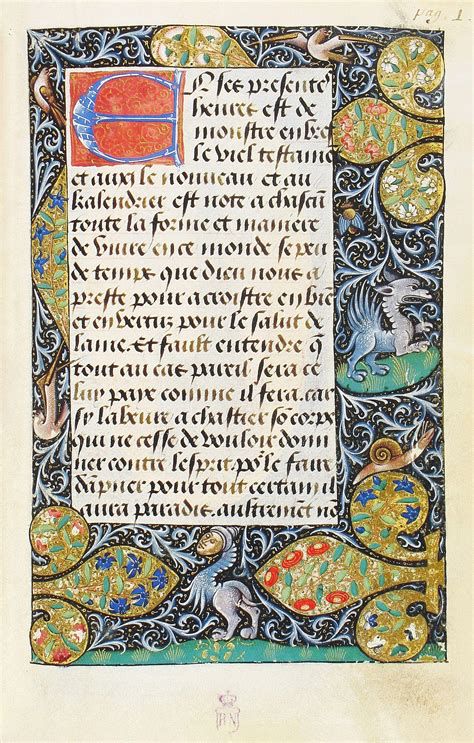 Pag. 1
En ces presente
heures est de
monstre en bref
le viel testame
et auxi le nouveau et au
kalendrier est note a chascun
toute la forme et maniere
de vivre en ce monde se peu
de temps que dieu nous a
preste pour acroistre en bie
et en vertuz pour le salut de
lame. Et fault entendre q
tout au cas pareil sera ce
luy paye comme il fera. car
sy labeure a chastier so corpo
qui ne cesse de vouloir dom
ner contre lesprit. po le faire
dapner pour tout certam il
aura paradis. austrement ne
BN